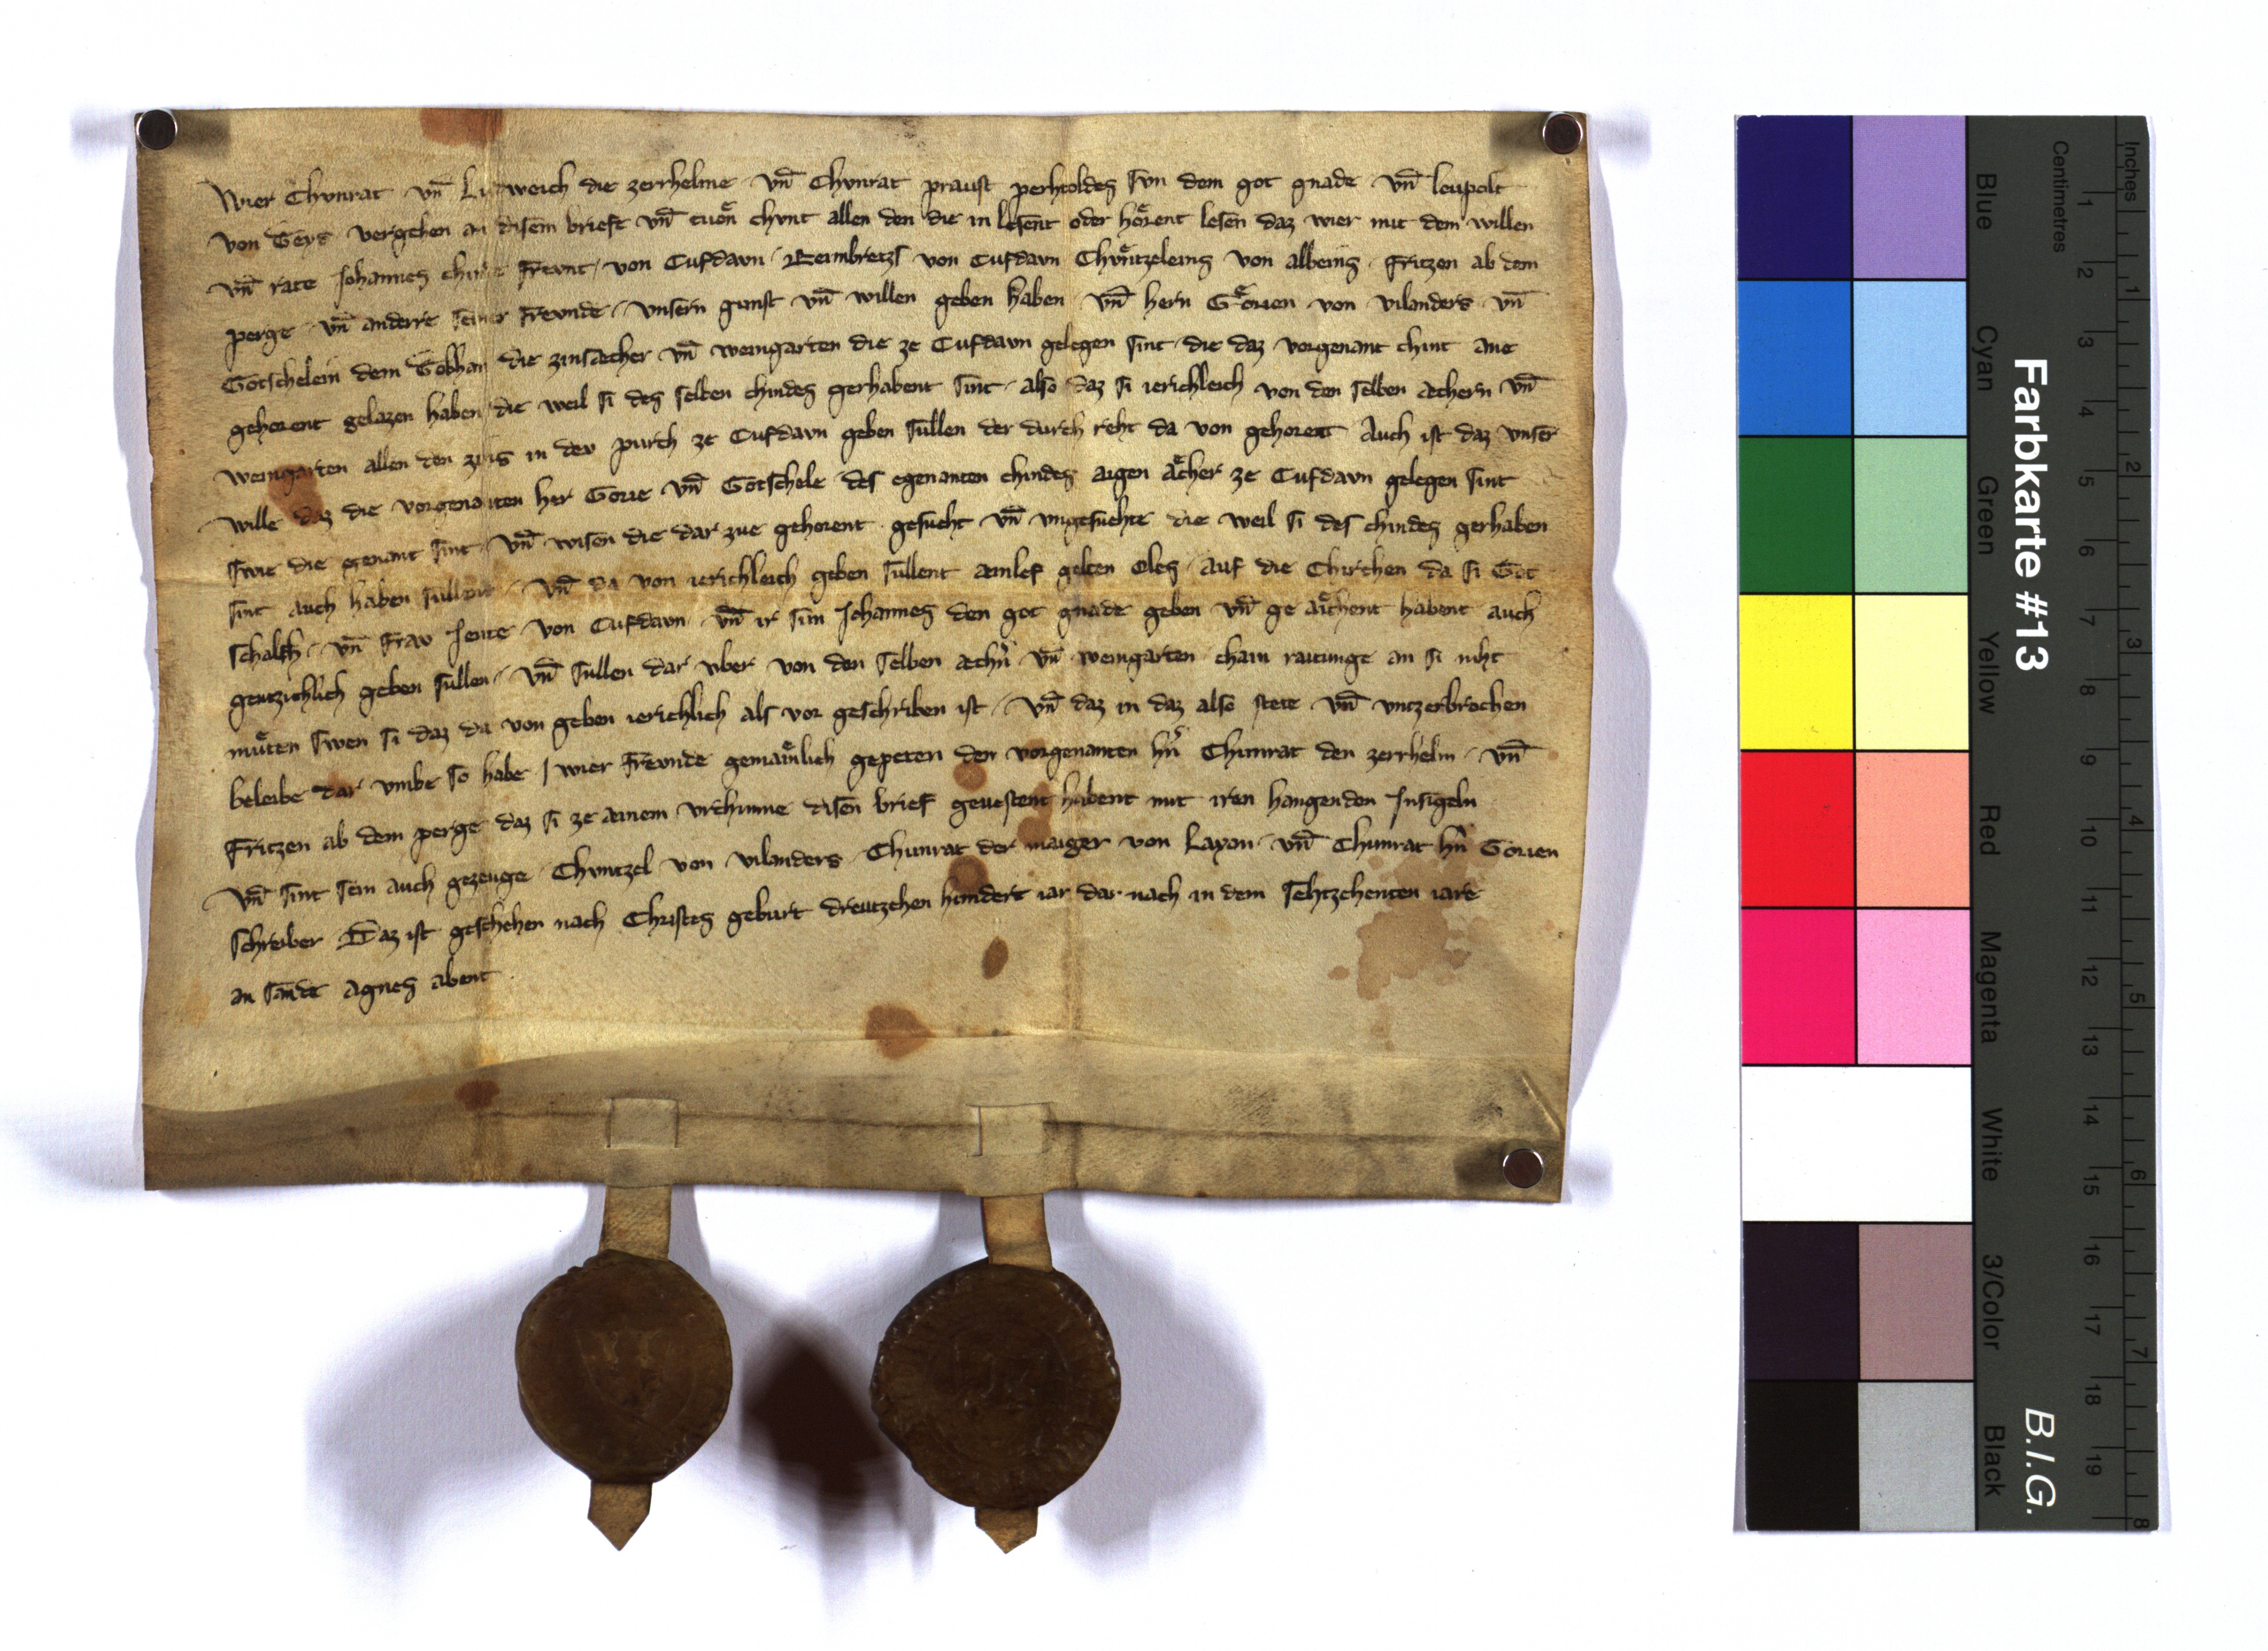 Wier Chvnrat vn̄ Ludweich die zerrhelme vn̄ Chvnrat praust perhtoldes svn dem got gnade vn̄ leupolt
von Teys vergehen an disem briefe vn̄ tuoͤn chvnt allen den die in lesent oder hoͤrent lesen daz wier mit dem willen
vn̄ rate Johannes chindes Frevnt von Cufdavn Reimbretzs von Cufdavn Chvͤntzeleins von albeins Fritzen ab dem
perge vn̄ anderre seiner Frevnde vnsern gunst vn̄ willen geben haben vn̄ hern Goͤrien von vilanders vn̄
Gotschelein dem Gobhan die zinsaecher vn̄ weingarten die ze Cufdavn gelegen sint die daz vorgenant chint ane
gehorent gelazen haben die weil si des selben chindes gerhabent sint also daz si ierichleich von den selben aechern vn̄
weingarten allen den zins in dev purch ze Cufdavn geben sullen der durch reht da von gehoret Auch ist daz vnser
wille daz die vorgenanten her Gorie vn̄ Gotschele des egenanten chindes aigen aͤcher ze Cufdavn gelegen sint
swie die genant sint vn̄ wisen die dar zue gehorent gesucht vn̄ vngesuchte die weil si des chindes gerhaben
sint auch haben sullent vn̄ da von ierichleich geben sullent ainlef gelten Oles auf die Chirchen da si Got
schalch vn̄ Frav Jeute von Cufdavn vn̄ ir sun Johannes den got gnade geben vn̄ ge aicͤhent habent auch
gentzichlich geben sullen vn̄ sullen dar vber von den selben aechn̄ vn̄ weingarten chain raitunge an si niht
muͤten swen si daz da von geben ierichlich als vor geschriben ist vn̄ daz in daz also stete vn̄ vntzerbrochen
beleibe dar vmbe so habe wier Frevnde gemaiͤnlich gepeten den vorgenanten hn̄ Chunrat den zerrhelm vn̄
Fritzen ab dem perge daz si ze ainem vrchunne disen brief gevestent habent mit iren hangenden Jnsigeln
vn̄ sint sein auch gezeuge Chvntzel von vilanders Chunrat der maiger von Layan vn̄ Chunrat hn̄ Gorien
schreiber Daz ist geschehen nach Christes geburt dreutzehen hundert iar dar nach in dem sehtzehenten iare
an sande Agnes abent
Farbkarte #13
B.I.G.
Centimetres
Inches
Blue Cyan Green Yellow Red Magenta White 3/Color Black
1 2 3 4 5 6 7 8 9 10 11 12 13 14 15 16 17 18 19
1 2 3 4 5 6 7 8